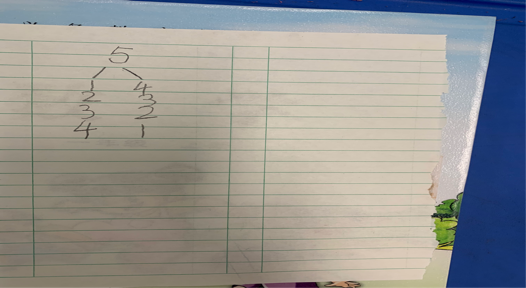 5
1 4
2 3
3 2
4 1